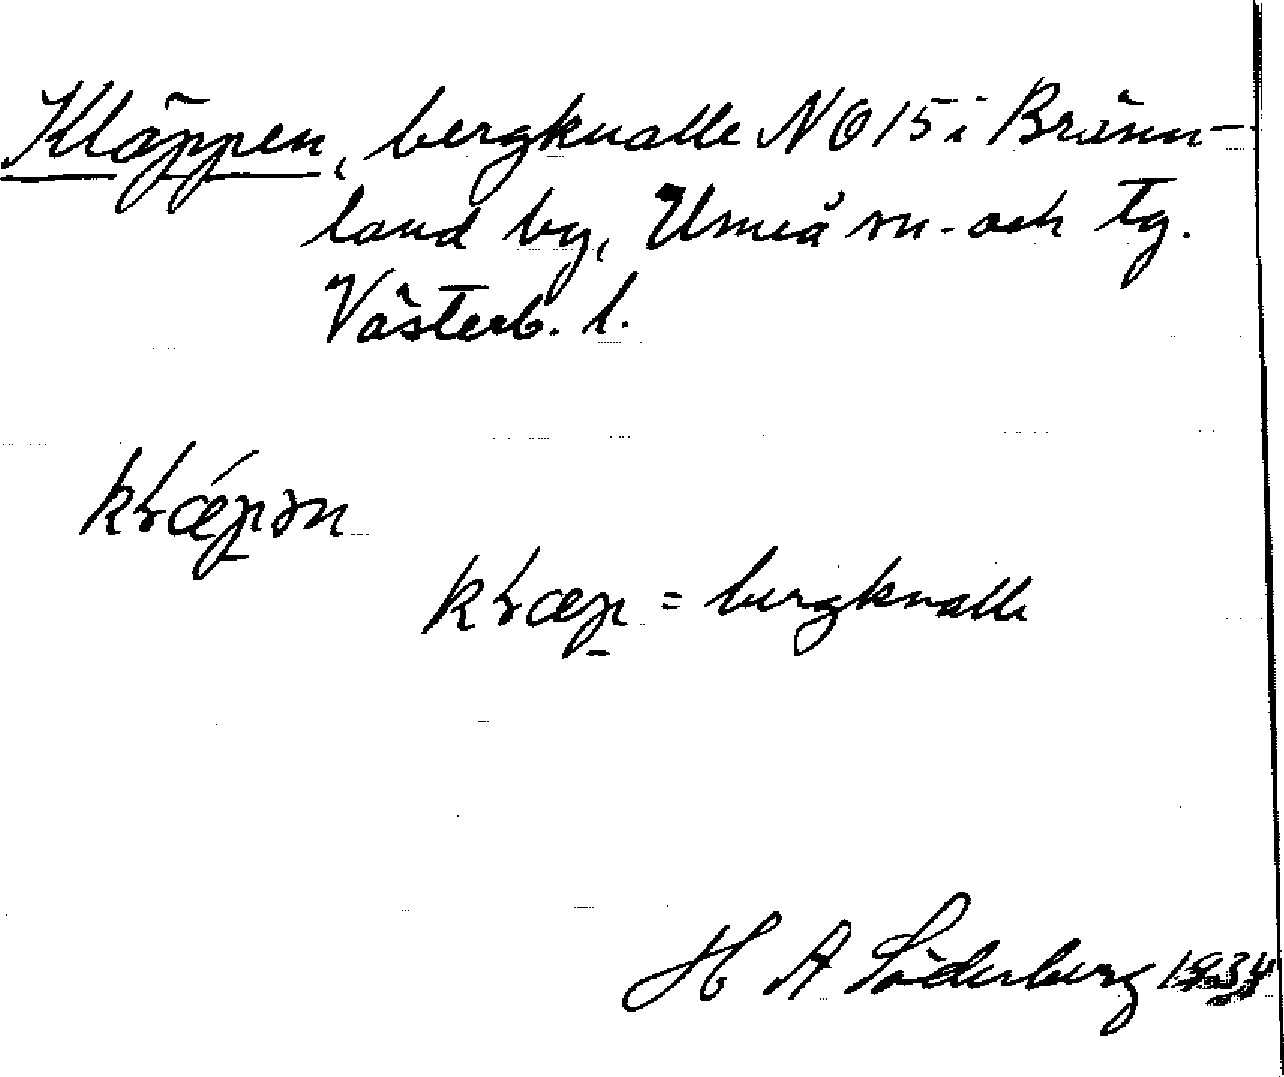 Kläppen, bergknalle NO 15 i Bränn-
land by, Umeå sn. och tg.
Västerb. l.
kɽǽp̱ən
kɽæp̱ = bergknalle
H A Söderberg 1934